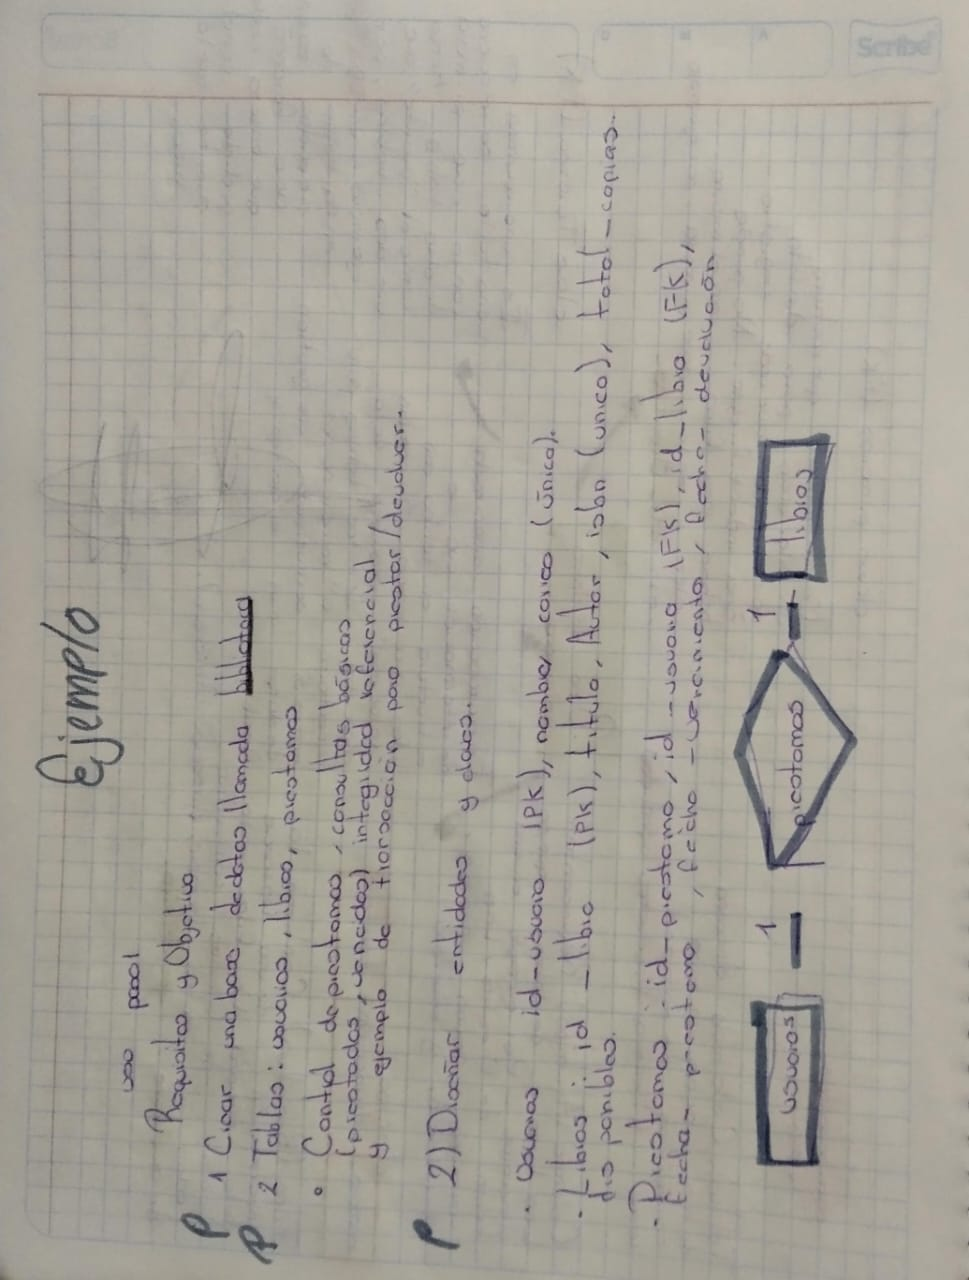 Scribe
Ejemplo
uso paso 1
Requisitos y Objetivo
P 1 Crear una base de datos llamada biblioteca
P 2 Tablas: usuarios, libros, prestamos
• Control de prestamos, consultas básicas
(prestados, vencidos) integridad referencial
y ejemplo de transaccion para prestar/devolver.
P 2) Diseñar entidades y claves.
· Usuarios id-usuario (PK), nombre, correo (único).
· Libros id-libro (PK), titulo, Autor, isbn (unico), total-copias.
disponibles.
· Prestamos: id-prestamo, id-usuario (FK), id-libro (FK),
fecha-prestamo, fecha-vencimiento, fecha-devolución
usuarios 1 prestamos 1 libros